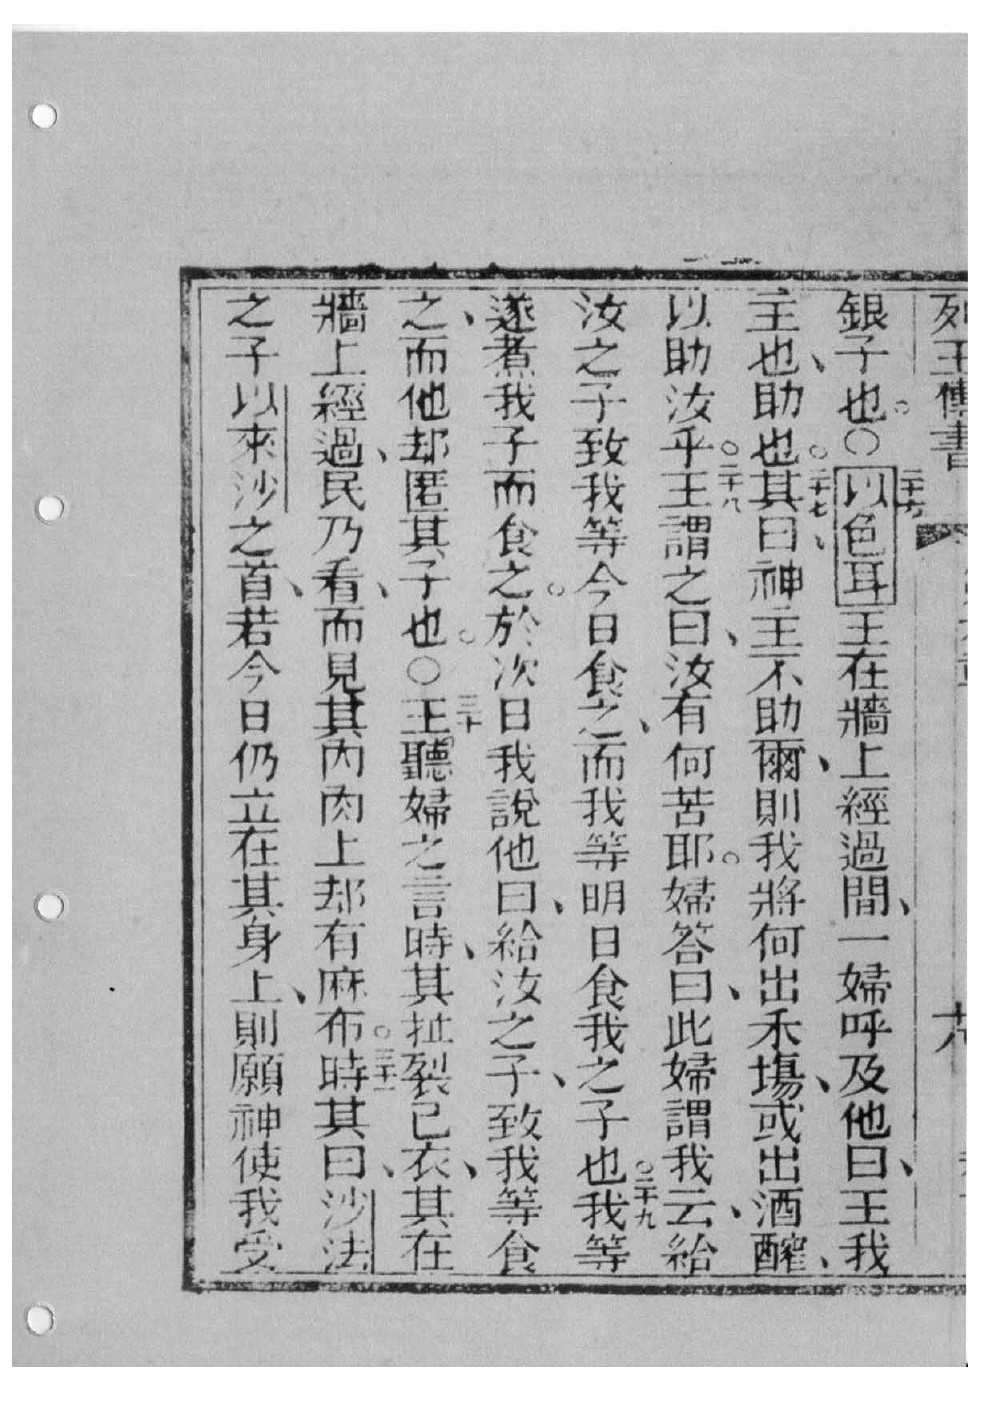 列王傳書
銀子也。○二十六以色耳王在牆上經過間、一婦呼及他曰、王我
主也、助也。二十七其曰、神主不助爾、則我將何出禾塲、或出酒醡、
以助汝乎。二十八王謂之曰、汝有何苦耶。婦答曰、此婦謂我云、給
汝之子致我等今日食之、而我等明日食我之子也。二十九我等
遂煮我子而食之。於次日我說他曰、給汝之子、致我等食
之、而他却匿其子也。○三十王聽婦之言時、其扯裂己衣、其在
牆上經過、民乃看、而見其內肉上却有麻布時。三十一其曰、沙法
之子以來沙之首、若今日仍立在其身上、則願神使我受